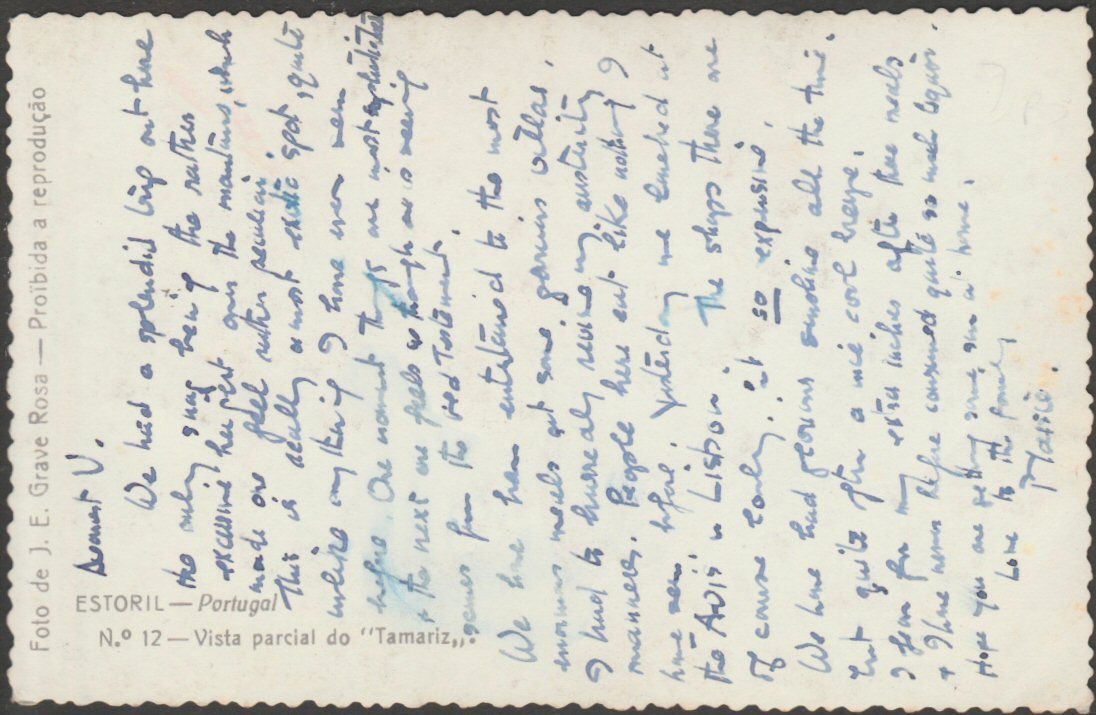 Foto de J. E. Grave Rosa — Proïbida a reprodução
ESTORIL — Portugal
N.º 12 — Vista parcial do "Tamariz„.
Dearest V.
We had a splendid trip out here
the only snag being the rather
excessive height over the mountains, which
made one feel rather peculiar.
This is really a most exotic spot, quite
unlike anything I have ever seen
before. One moment things are most sophisticated
& the next one feels as though one is seeing
scenes from the old Testament.
We have been entertained to the most
enormous meals at some gorgeous villas.
I had to hurriedly resume my austerity
manners. People here eat like nothing I
have seen before. Yesterday we lunched at
the Aviz in Lisbon. The shops there are
of course lovely.. it so expensive.
We have had glorious sunshine all the time.
but quite often a nice cool breeze.
I fear for my extra inches after these meals
& I have never before consumed quite so much liquor.
Hope you are getting some sun at home.
Love to the family